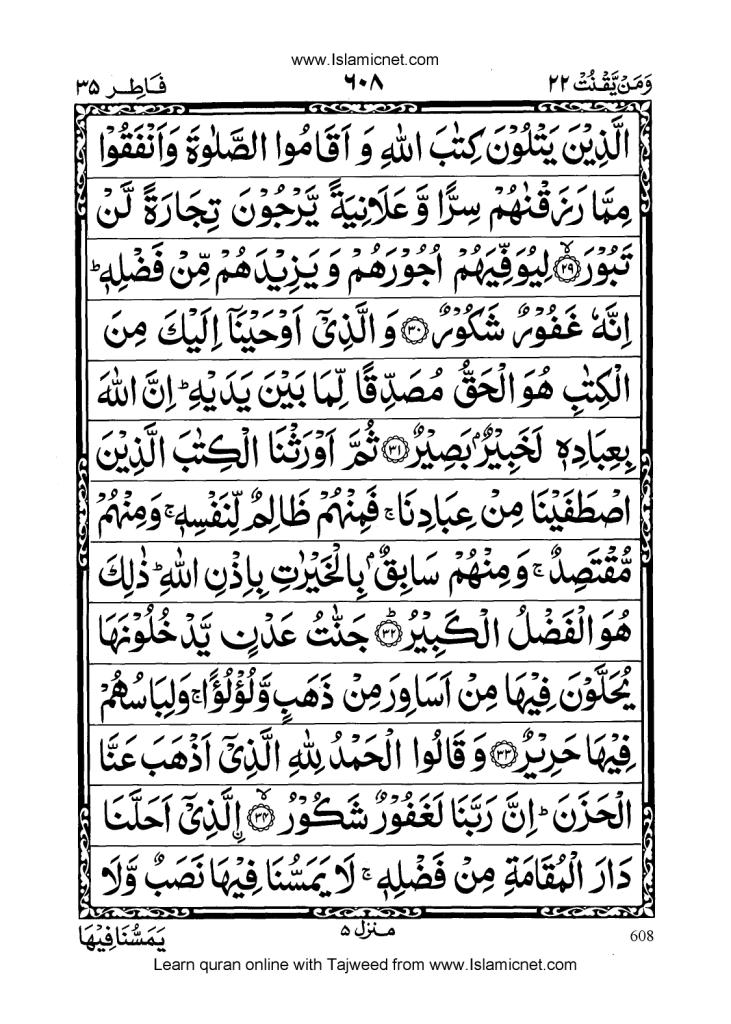 www.Islamicnet.com
وَمَنْ يَّقْنُتْ ٢٢ ٦٠٨ فَاطِر ٣٥
الَّذِيْنَ يَتْلُوْنَ كِتٰبَ اللهِ وَ اَقَامُوا الصَّلٰوةَ وَاَنْفَقُوْا
مِمَّا رَزَقْنٰهُمْ سِرًّا وَّ عَلَانِيَةً يَّرْجُوْنَ تِجَارَةً لَّنْ
تَبُوْرَ ۙ‏﴿٢٩﴾ لِيُوَفِّيَهُمْ اُجُوْرَهُمْ وَ يَزِيْدَهُمْ مِّنْ فَضْلِهٖ ؕ
اِنَّهٗ غَفُوْرٌ شَكُوْرٌ ﴿٣٠﴾ وَ الَّذِيْۤ اَوْحَيْنَاۤ اِلَيْكَ مِنَ
الْكِتٰبِ هُوَ الْحَقُّ مُصَدِّقًا لِّمَا بَيْنَ يَدَيْهِ ؕ اِنَّ اللهَ
بِعِبَادِهٖ لَخَبِيْرٌۢ بَصِيْرٌ ﴿٣١﴾ ثُمَّ اَوْرَثْنَا الْكِتٰبَ الَّذِيْنَ
اصْطَفَيْنَا مِنْ عِبَادِنَا ۚ فَمِنْهُمْ ظَالِمٌ لِّنَفْسِهٖ ۚ وَمِنْهُمْ
مُّقْتَصِدٌ ۚ وَمِنْهُمْ سَابِقٌۢ بِالْخَيْرٰتِ بِاِذْنِ اللهِ ؕ ذٰلِكَ
هُوَ الْفَضْلُ الْكَبِيْرُ ؕ﴿٣٢﴾ جَنّٰتُ عَدْنٍ يَّدْخُلُوْنَهَا
يُحَلَّوْنَ فِيْهَا مِنْ اَسَاوِرَ مِنْ ذَهَبٍ وَّلُؤْلُؤًا ۚ وَلِبَاسُهُمْ
فِيْهَا حَرِيْرٌ ﴿٣٣﴾ وَ قَالُوا الْحَمْدُ لِلّٰهِ الَّذِيْۤ اَذْهَبَ عَنَّا
الْحَزَنَ ؕ اِنَّ رَبَّنَا لَغَفُوْرٌ شَكُوْرُ ۙ﴿٣٤﴾ اِ۟لَّذِيْۤ اَحَلَّنَا
دَارَ الْمُقَامَةِ مِنْ فَضْلِهٖ ۚ لَا يَمَسُّنَا فِيْهَا نَصَبٌ وَّلَا
608 منزل ٥ يَمَسُّنَا فِيْهَا
Learn quran online with Tajweed from www.Islamicnet.com